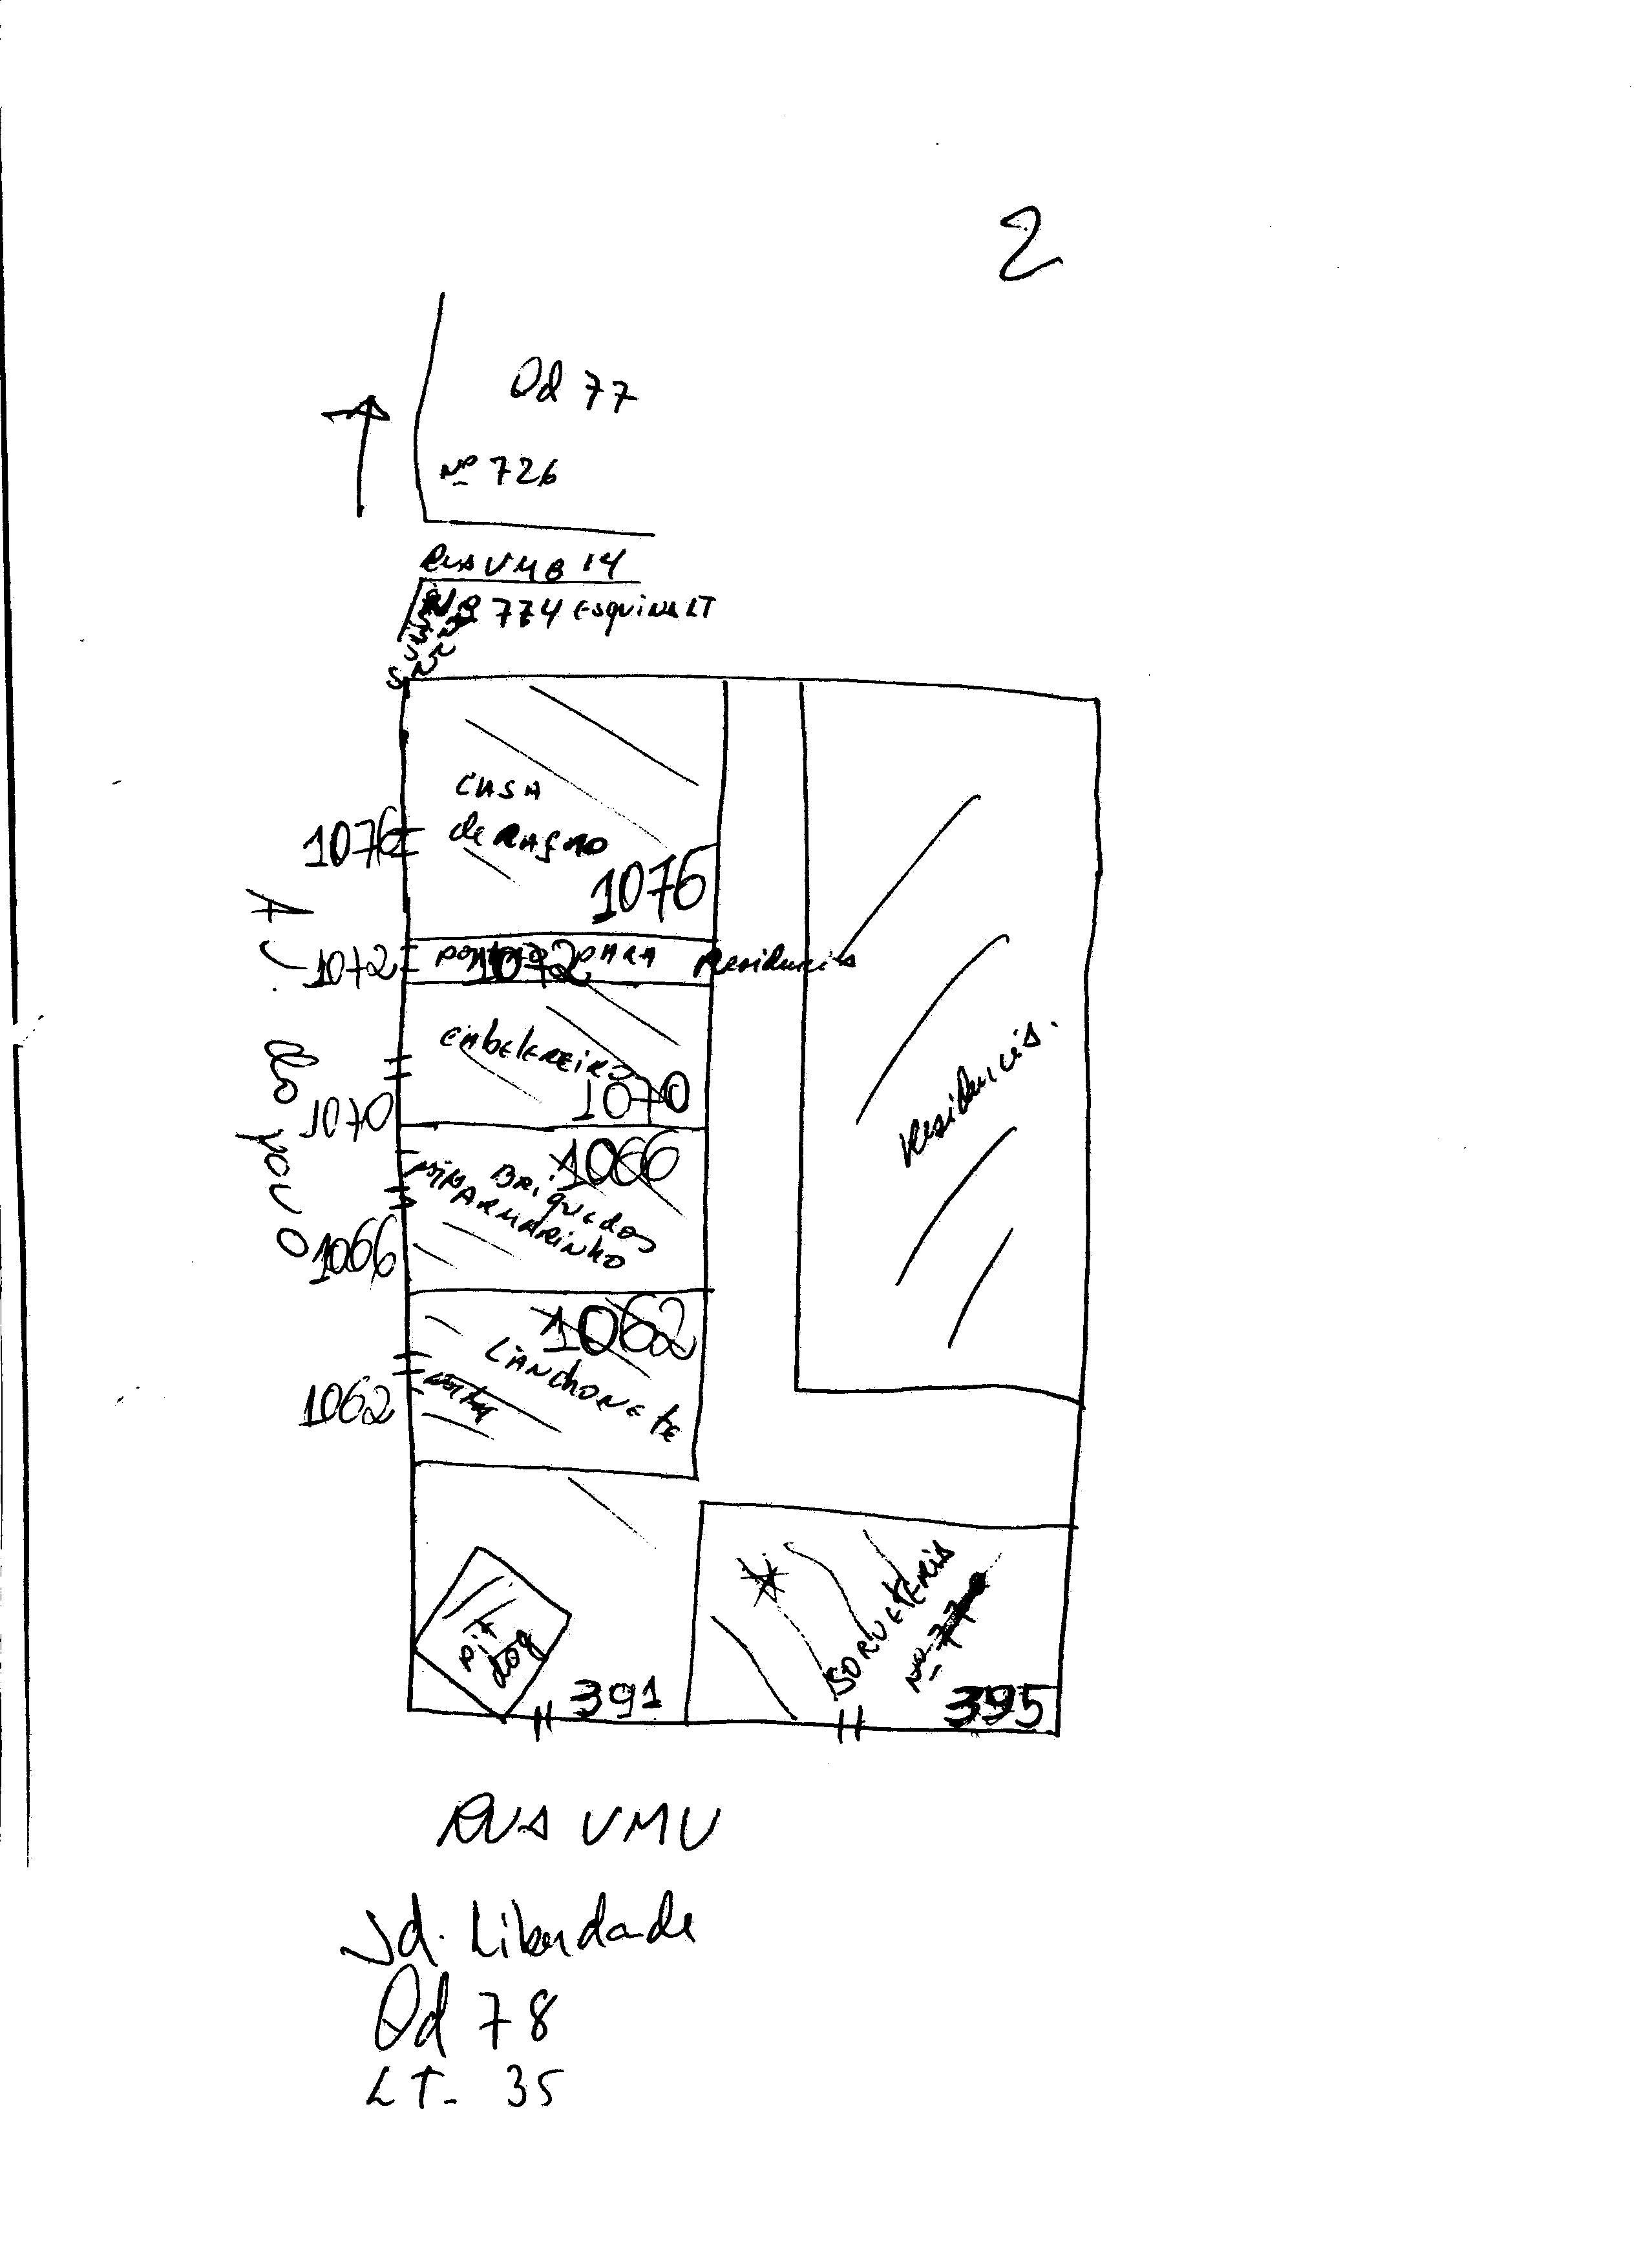 2
Qd 77
Nº 726
RUA VMB 14
Nº 774 ESQUINA LT
CASA
de RAÇÃO
1076
1076
1072
PORTÃO PARA Residencia
1072
CABELEREIRO
1070
1070
Av. do povo
1066
BRIQUEDOS
ARMARINHO
1066
1062
LANCHONETE
1062
Residencia.
Pit
dog
391
SORVETERIA
Nº 77
395
RUA VMV
Jd. Liberdade
Qd 78
LT- 35